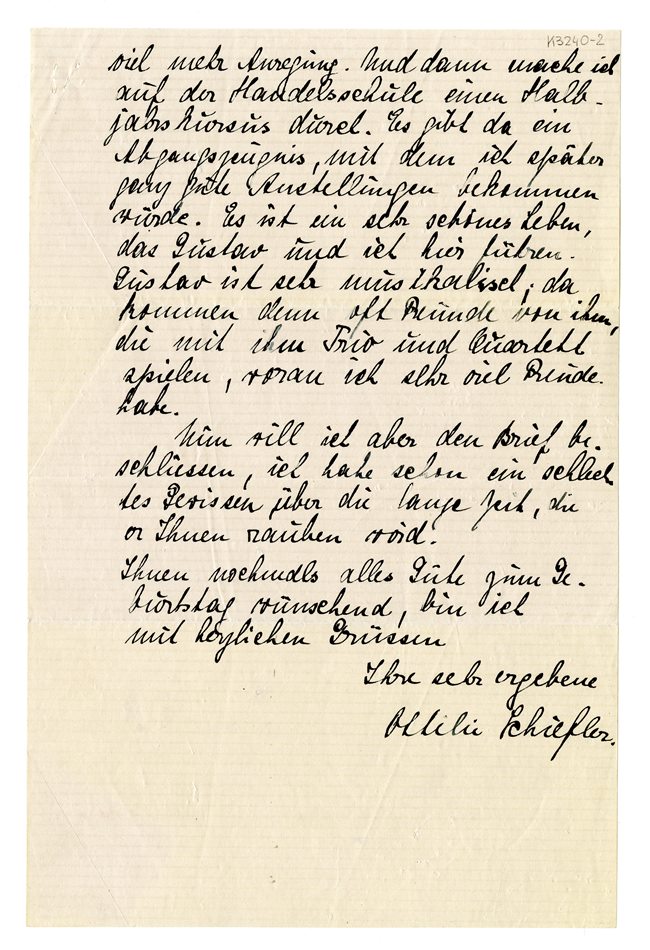 K3240-2
viel mehr Anregung. Und dann mache ich
auf der Handelsschule einen Halb-
jahrskursus durch. Es gibt da ein
Abgangszeugnis, mit dem ich später
ganz gute Anstellungen bekommen
würde. Es ist ein sehr schönes Leben,
das Gustav und ich hier führen.
Gustav ist sehr musikalisch; da
kommen denn oft Freunde von ihm,
die mit ihm Trio und Quartett
spielen, woran ich sehr viel Freude
habe.
Nun will ich aber den Brief be-
schliessen, ich habe schon ein schlech
tes Gewissen über die lange Zeit, die
er Ihnen rauben wird.
Ihnen nochmals alles Gute zum Ge-
burtstag wünschend, bin ich
mit herzlichen Grüssen
Ihre sehr ergebene
Ottilie Schiefler.